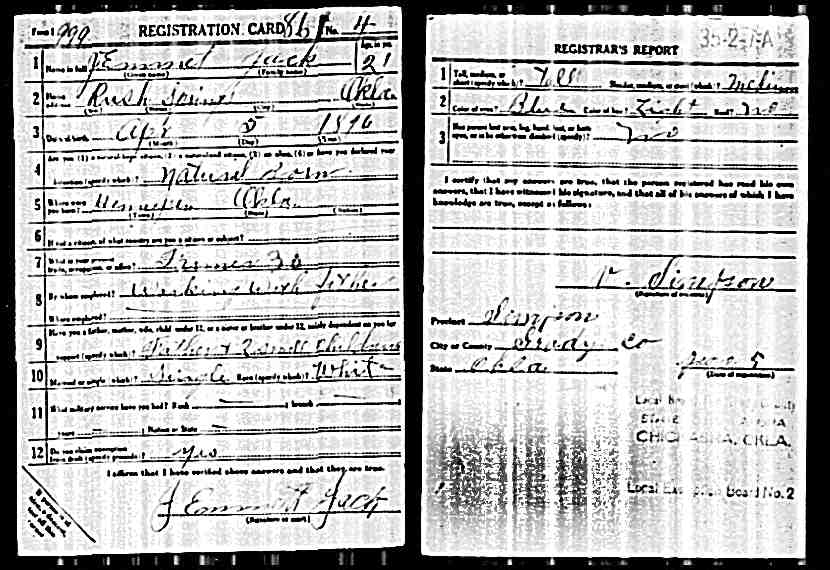 Form 1 999 REGISTRATION CARD 86 No. 4
1 Name in full J Emmet Jack Age, in yrs. 21
(Given name) (Family name)
2 Home address Rush Springs Okla
3 Date of birth Apr 5 1896
(Month) (Day) (Year)
4 Are you (1) a natural-born citizen, (2) a naturalized citizen, (3) an alien, (4) or have you declared your
intention (specify which)? Natural born
5 Where were you born? Hennepin Okla
(Town) (State) (Nation)
6 If not a citizen, of what country are you a citizen or subject?
7 What is your present trade, occupation, or office? Farmer 30
8 By whom employed? Working with Father
Where employed?
9 Have you a father, mother, wife, child under 12, or a sister or brother under 12, solely dependent on you for
support (specify which)? Father & 2 small children
10 Married or single (which)? Single Race (specify which)? White
11 What military service have you had? Rank branch
years Nation or State
12 Do you claim exemption from draft (specify grounds)? yes
I affirm that I have verified above answers and that they are true.
J Emmett Jack
(Signature or mark)
REGISTRAR'S REPORT
1 Tall, medium, or short (specify which)? Tall Slender, medium, or stout (which)? Medium
2 Color of eyes? Blue Color of hair? Light Bald? No
3 Has person lost arm, leg, hand, foot, or both eyes, or is he otherwise disabled (specify)? No
I certify that my answers are true, that the person registered has read his own
answers, that I have witnessed his signature, and that all of his answers of which I have
knowledge are true, except as follows:
Simpson
(Signature of registrar)
Precinct Simpson
City or County Grady Co
State Okla June 5
(Date of registration)
CHICKASHA, OKLA.
Local Exemption Board No. 2